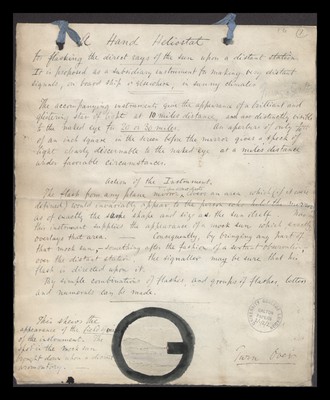 A Hand Heliostat
for flashing the direct rays of the sun upon a distant station.
It is proposed as a subsidiary instrument for making very distant
signals, on board ship or elsewhere, in sunny climates
The accompanying instruments give the appearance of a brilliant and
glittering star of light at 10 miles distance, and are distinctly visible
to the naked eye to 20 or 30 miles. the aperture of only
of an inch square in the screen before the mirror gives a speck of
light clearly discernable to the naked eye at a miles distance
under favorable circumstances.
Action of the Instrument.
The flash from any plane mirror covers an area which (if it were
defined) would invariably appear to the person who held the mirror
as of exactly the shape and size as the sun itself.
this instrument supplies the appearance of a mock sun which exactly
overlays that area. Consequently, by bringing any part of
that mock sun, something after the fashion of a sextant observation,
over the distant station the signaller may be sure that his
flash is directed upon it.
By simple combinations of flashes and groups of flashes, letters
and numerals can be made.
This shews the
appearance of the field of view
of the instrument. The
spot is the mock sun
brought down upon a distant
promontory.
Turn Over